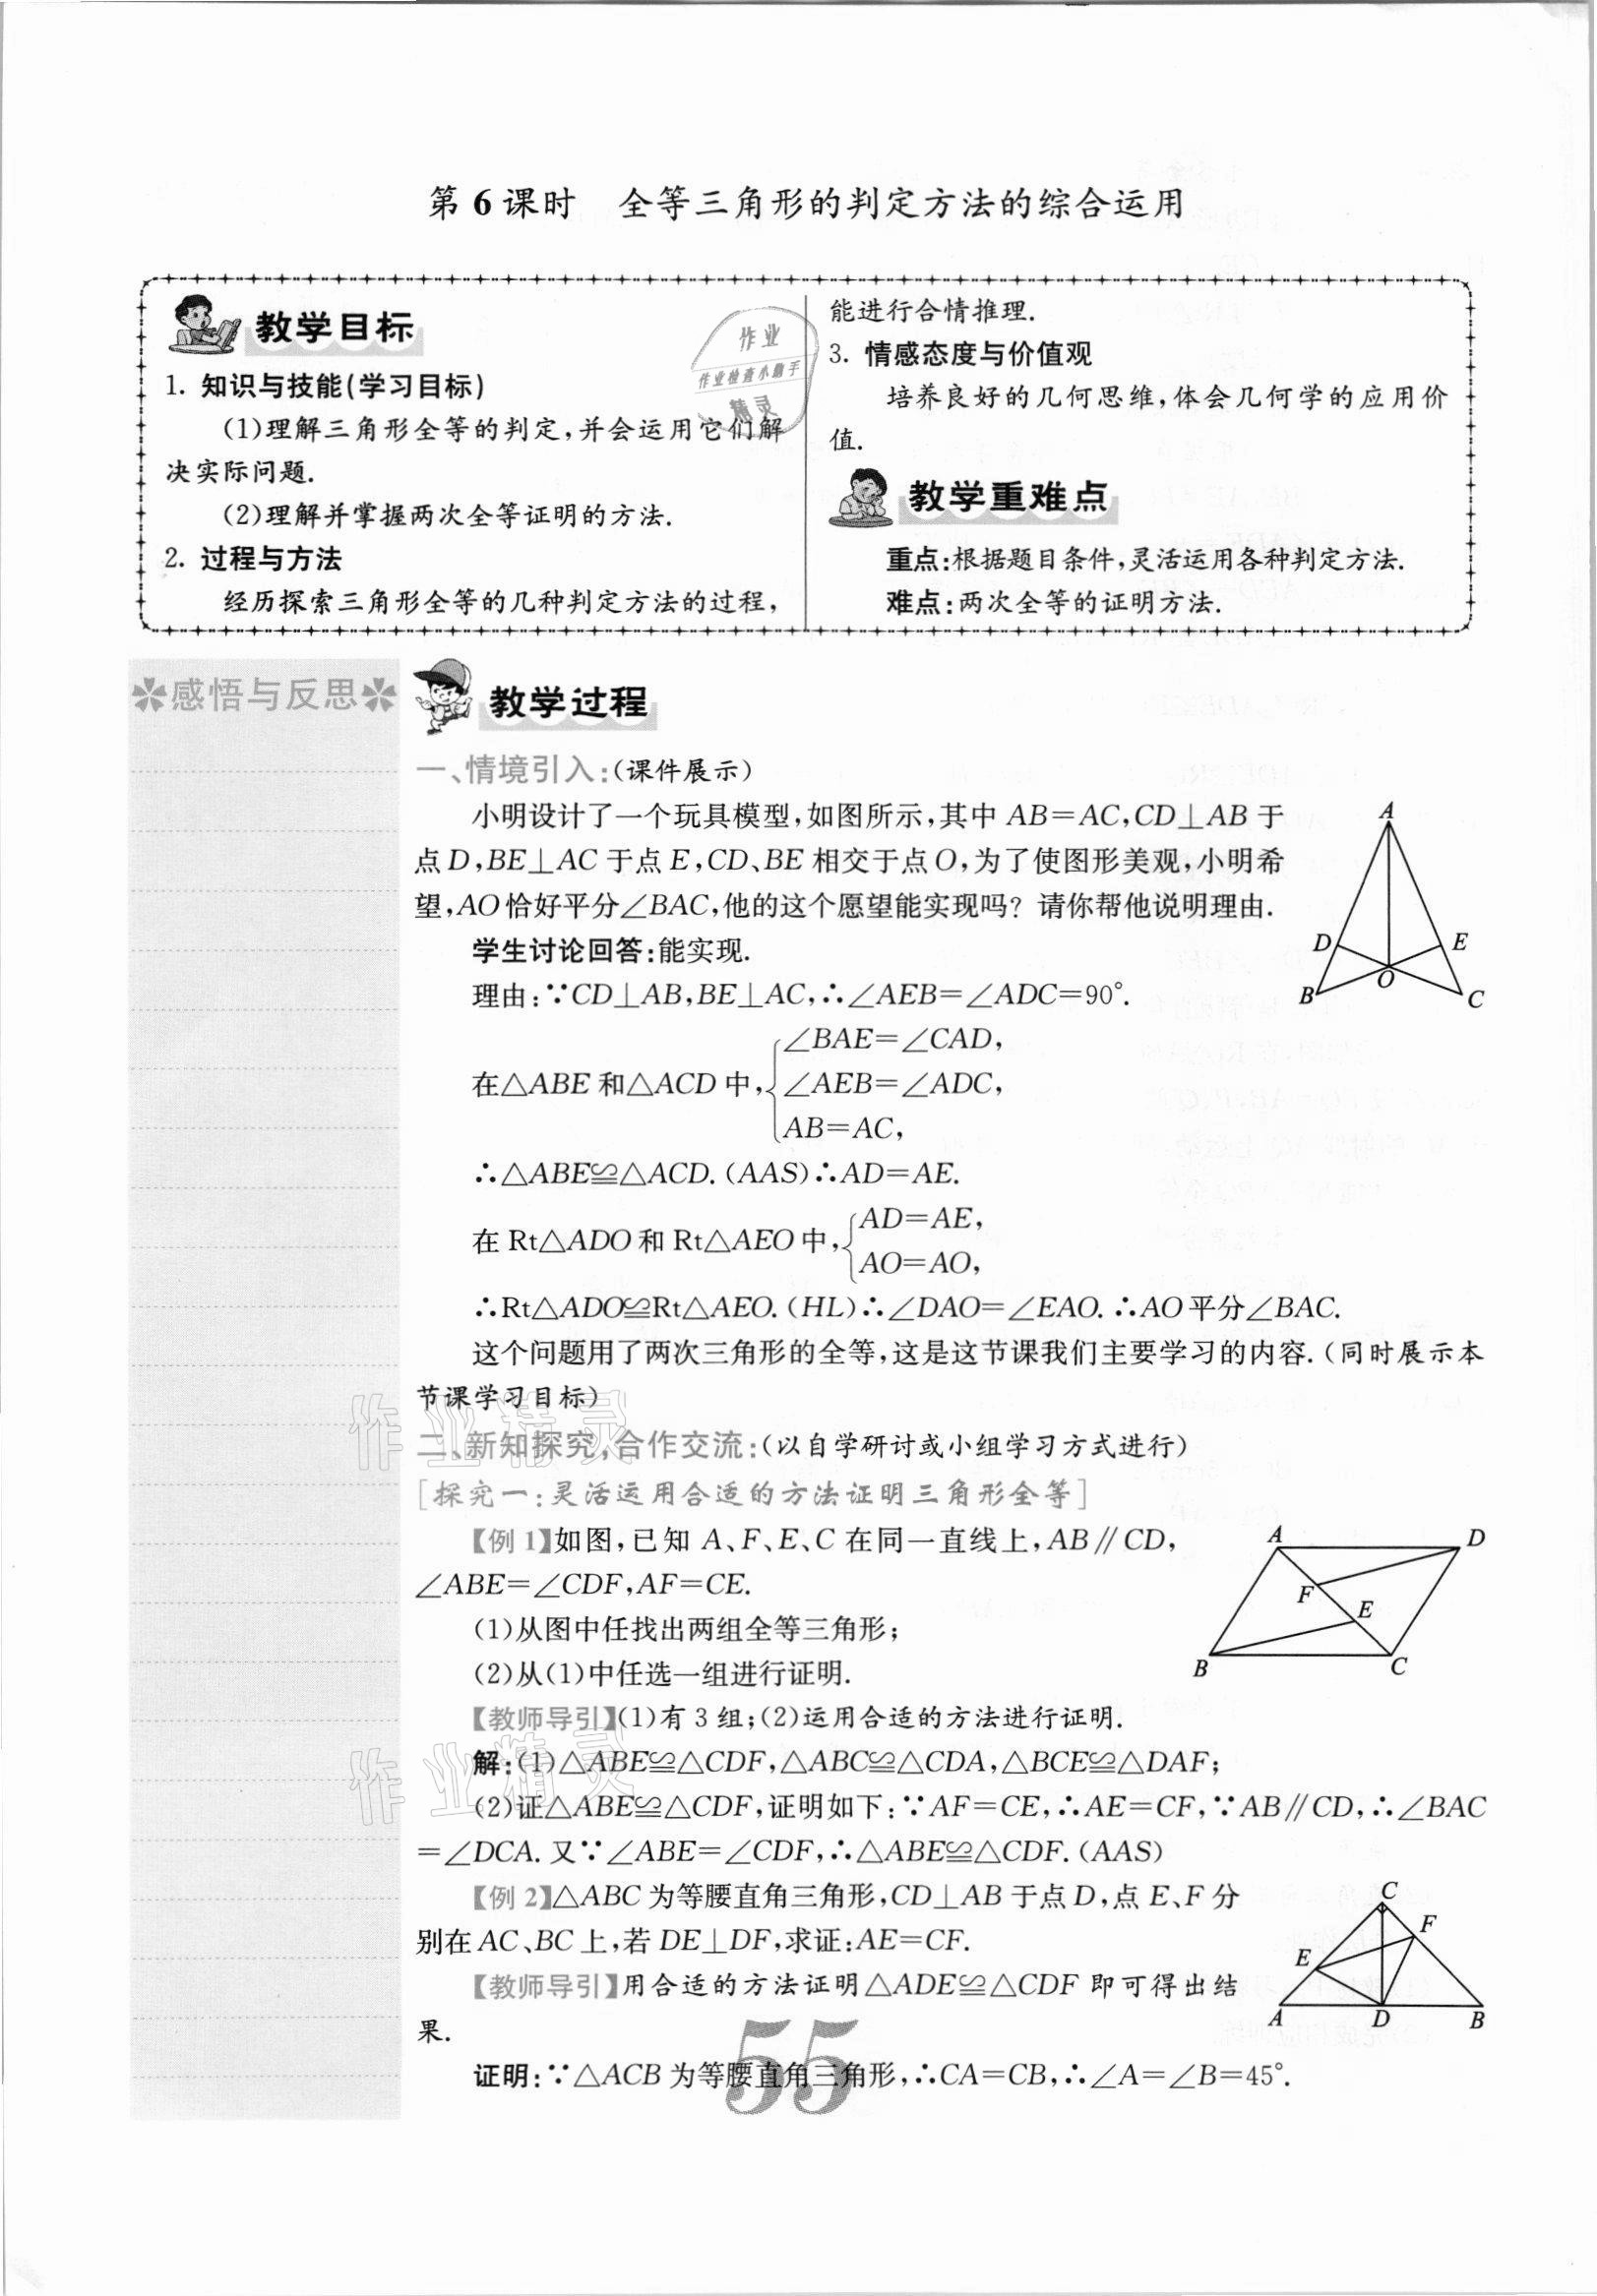 第6课时　全等三角形的判定方法的综合运用
教学目标
1. 知识与技能(学习目标)
(1)理解三角形全等的判定,并会运用它们解
决实际问题.
(2)理解并掌握两次全等证明的方法.
2. 过程与方法
经历探索三角形全等的几种判定方法的过程,
能进行合情推理.
3. 情感态度与价值观
培养良好的几何思维,体会几何学的应用价
值.
教学重难点
重点:根据题目条件,灵活运用各种判定方法.
难点:两次全等的证明方法.
作业
作业检查小助手
精灵
感悟与反思
教学过程
一、情境引入:(课件展示)
小明设计了一个玩具模型,如图所示,其中 AB=AC,CD⊥AB 于
点 D,BE⊥AC 于点 E,CD、BE 相交于点 O,为了使图形美观,小明希
望,AO 恰好平分∠BAC,他的这个愿望能实现吗? 请你帮他说明理由.
A
D
E
B
O
C
学生讨论回答:能实现.
理由:∵CD⊥AB,BE⊥AC,∴∠AEB=∠ADC=90°.
∠BAE=∠CAD,
在△ABE 和△ACD 中, ∠AEB=∠ADC,
AB=AC,
∴△ABE≌△ACD. (AAS)∴AD=AE.
AD=AE,
在 Rt△ADO 和 Rt△AEO 中,
AO=AO,
∴Rt△ADO≌Rt△AEO. (HL)∴∠DAO=∠EAO. ∴AO 平分∠BAC.
这个问题用了两次三角形的全等,这是这节课我们主要学习的内容.(同时展示本
节课学习目标)
作业精灵
二、新知探究,合作交流:(以自学研讨或小组学习方式进行)
[探究一:灵活运用合适的方法证明三角形全等]
【例 1】如图,已知 A、F、E、C 在同一直线上,AB∥CD,
∠ABE=∠CDF,AF=CE.
(1)从图中任找出两组全等三角形;
(2)从(1)中任选一组进行证明.
A
D
F
E
B
C
【教师导引】(1)有 3 组;(2)运用合适的方法进行证明.
作业精灵
解:(1)△ABE≌△CDF,△ABC≌△CDA,△BCE≌△DAF;
(2)证△ABE≌△CDF,证明如下:∵AF=CE,∴AE=CF,∵AB∥CD,∴∠BAC
=∠DCA. 又∵∠ABE=∠CDF,∴△ABE≌△CDF. (AAS)
【例 2】△ABC 为等腰直角三角形,CD⊥AB 于点 D,点 E、F 分
别在 AC、BC 上,若 DE⊥DF,求证:AE=CF.
C
F
E
A
D
B
【教师导引】用合适的方法证明△ADE≌△CDF 即可得出结
果.
证明:∵△ACB 为等腰直角三角形,∴CA=CB,∴∠A=∠B=45°.
55